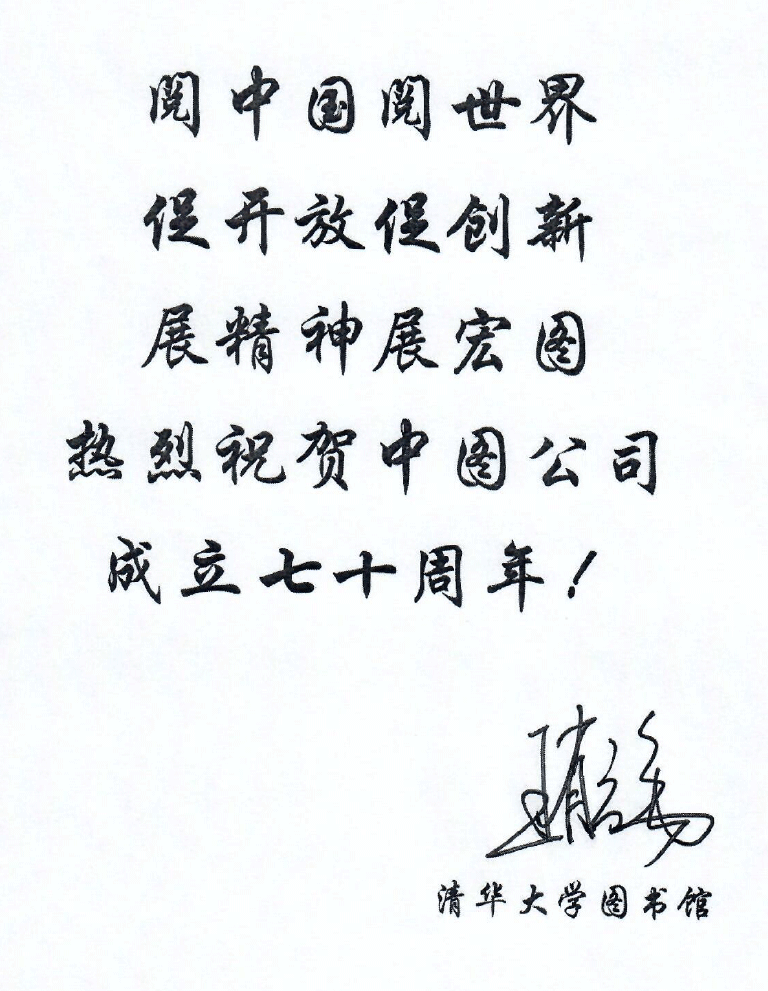 阅中国阅世界
促开放促创新
展精神展宏图
热烈祝贺中图公司
成立七十周年!
清华大学图书馆